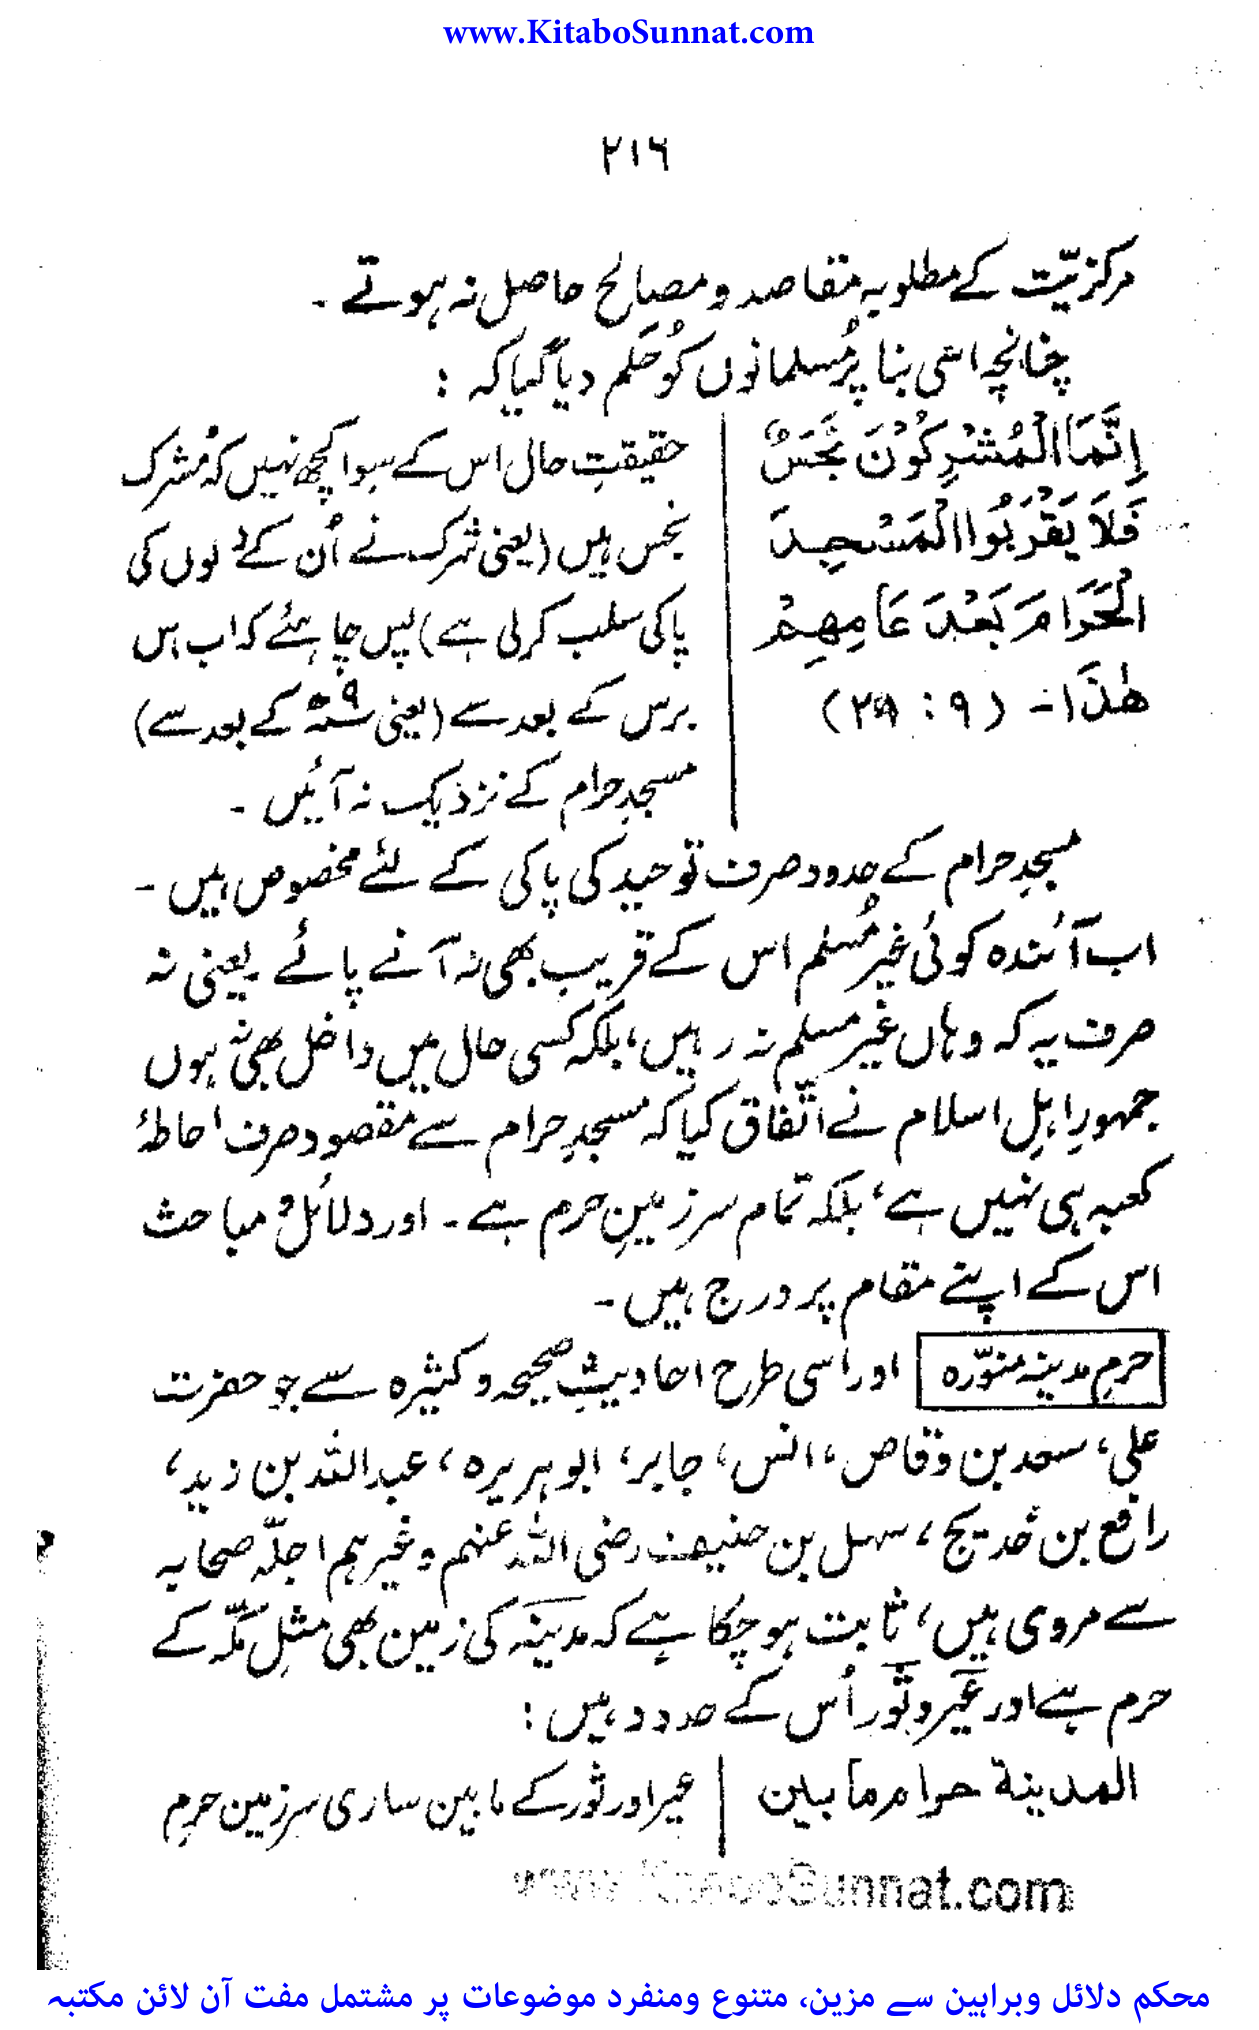 www.KitaboSunnat.com
۲۱۶
مرکزیّت کے مطلوبہ مقاصد و مصالح حاصل نہ ہوتے ۔
چنانچہ اسی بنا پر مُسلمانوں کو حکم دیا گیا کہ :
اِنَّمَا الْمُشْرِكُوْنَ نَجَسٌ
فَلَا يَقْرَبُوا الْمَسْجِدَ
الْحَرَامَ بَعْدَ عَامِهِمْ
هٰذَا ۔ (۹ : ۲۸)
حقیقتِ حال اس کے سوا کچھ نہیں کہ مُشرک
نجس ہیں (یعنی شرک نے اُن کے دلوں کی
پاکی سلب کرلی ہے) پس چاہئے کہ اب اس
برس کے بعد سے (یعنی سنہ ۹ھ کے بعد سے)
مسجدِ حرام کے نزدیک نہ آئیں ۔
مسجدِ حرام کے حدود صرف توحید کی پاکی کے لئے مخصوص ہیں ۔
اب آئندہ کوئی غیر مُسلم اس کے قریب بھی نہ آنے پائے یعنی نہ
صرف یہ کہ وہاں غیر مسلم نہ رہیں، بلکہ کسی حال میں داخل بھی نہ ہوں
جمہورِ اہلِ اسلام نے اتّفاق کیا کہ مسجدِ حرام سے مقصود صرف احاطۂ
کعبہ ہی نہیں ہے، بلکہ تمام سرزمینِ حرم ہے ۔ اور دلائل و مباحث
اس کے اپنے مقام پر درج ہیں ۔
حرمِ مدینہ منوّرہ اور اسی طرح احادیثِ صحیحہ و کثیرہ سے جو حضرت
علی، سعد بن وقاص، انس، جابر، ابو ہریرہ، عبداللہ بن زید،
رافع بن خدیج، سہل بن حنیف رضی اللہ عنہم وغیرہم اجلّہ صحابہ
سے مروی ہیں، ثابت ہو چکا ہے کہ مدینہ کی زمین بھی مثلِ مکّہ کے
حرم ہے اور عَیر و ثَور اُس کے حدود ہیں :
المدینة حرام ما بین
عیر اور ثور کے مابین ساری سرزمین حرم
www.KitaboSunnat.com
محکم دلائل وبراہین سے مزین، متنوع ومنفرد موضوعات پر مشتمل مفت آن لائن مکتبہ